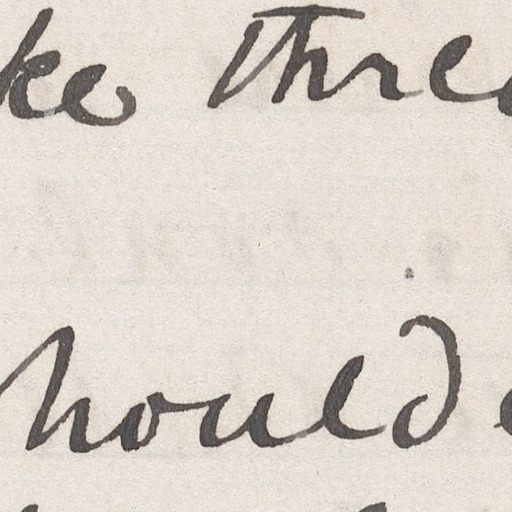 ke thre
hould